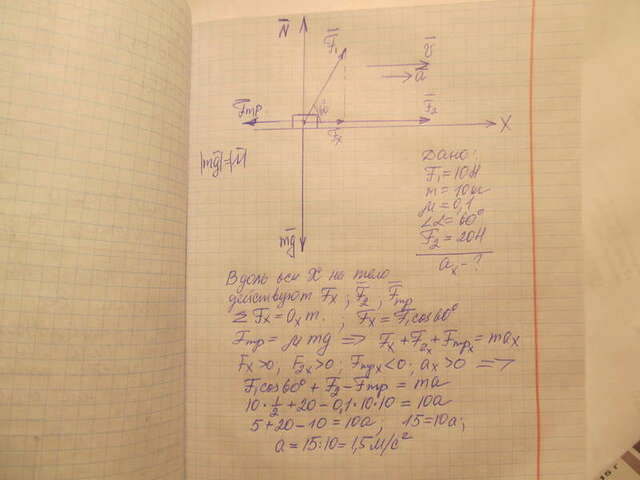 N̄
F̄₁
v̄
ā
F̄тр
60
Fₓ
F̄₂
X
|mḡ|=|N̄|
mḡ
Дано:
F₁=10Н
m=10кг
μ=0,1
∠α=60°
F₂=20Н
aₓ-?
Вдоль оси X на тело
действуют F̄ₓ; F̄₂; F̄тр
ΣFₓ=aₓm.; Fₓ=F₁cos60°
Fтр=μmg => Fₓ+F₂ₓ+Fтрₓ=maₓ
Fₓ>0; F₂ₓ>0; Fтрₓ<0; aₓ>0 =>
F₁cos60°+F₂-Fтр=ma
10·1/2+20-0,1·10·10=10a
5+20-10=10a; 15=10a;
a=15:10=1,5м/с²
15г